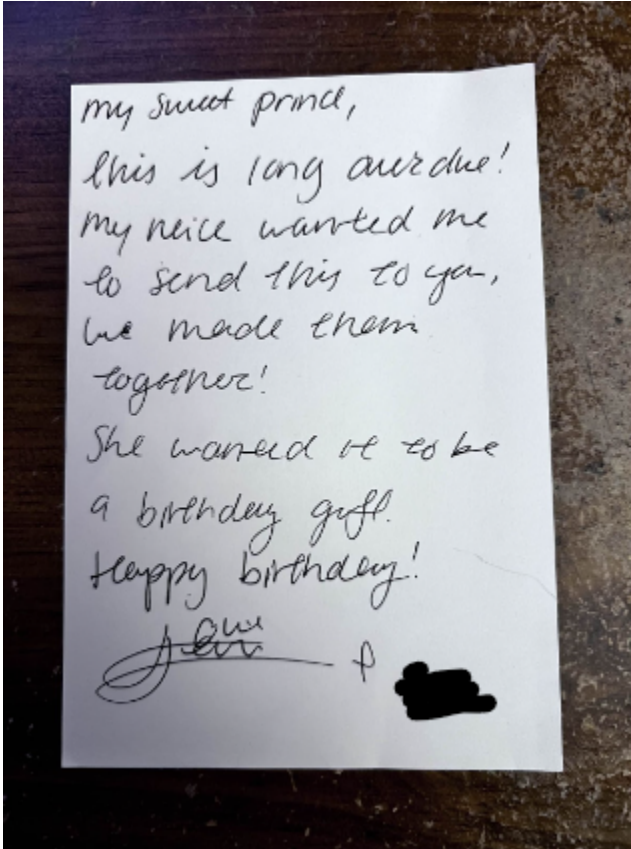 my sweet prince,
this is long overdue!
my neice wanted me
to send this to you,
we made them
together!
She wanted it to be
a birthday gift.
Happy birthday!